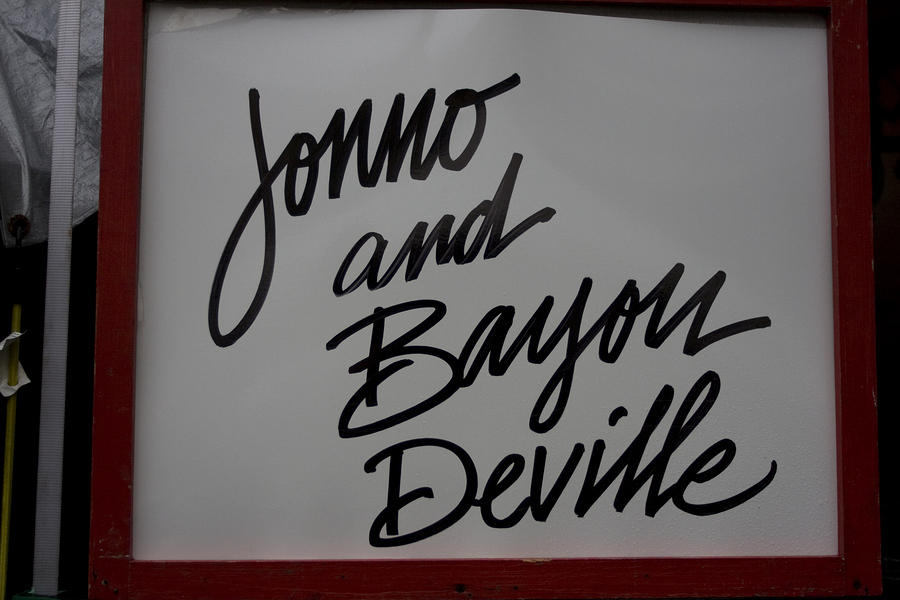 Jonno
and
Bayou
Deville